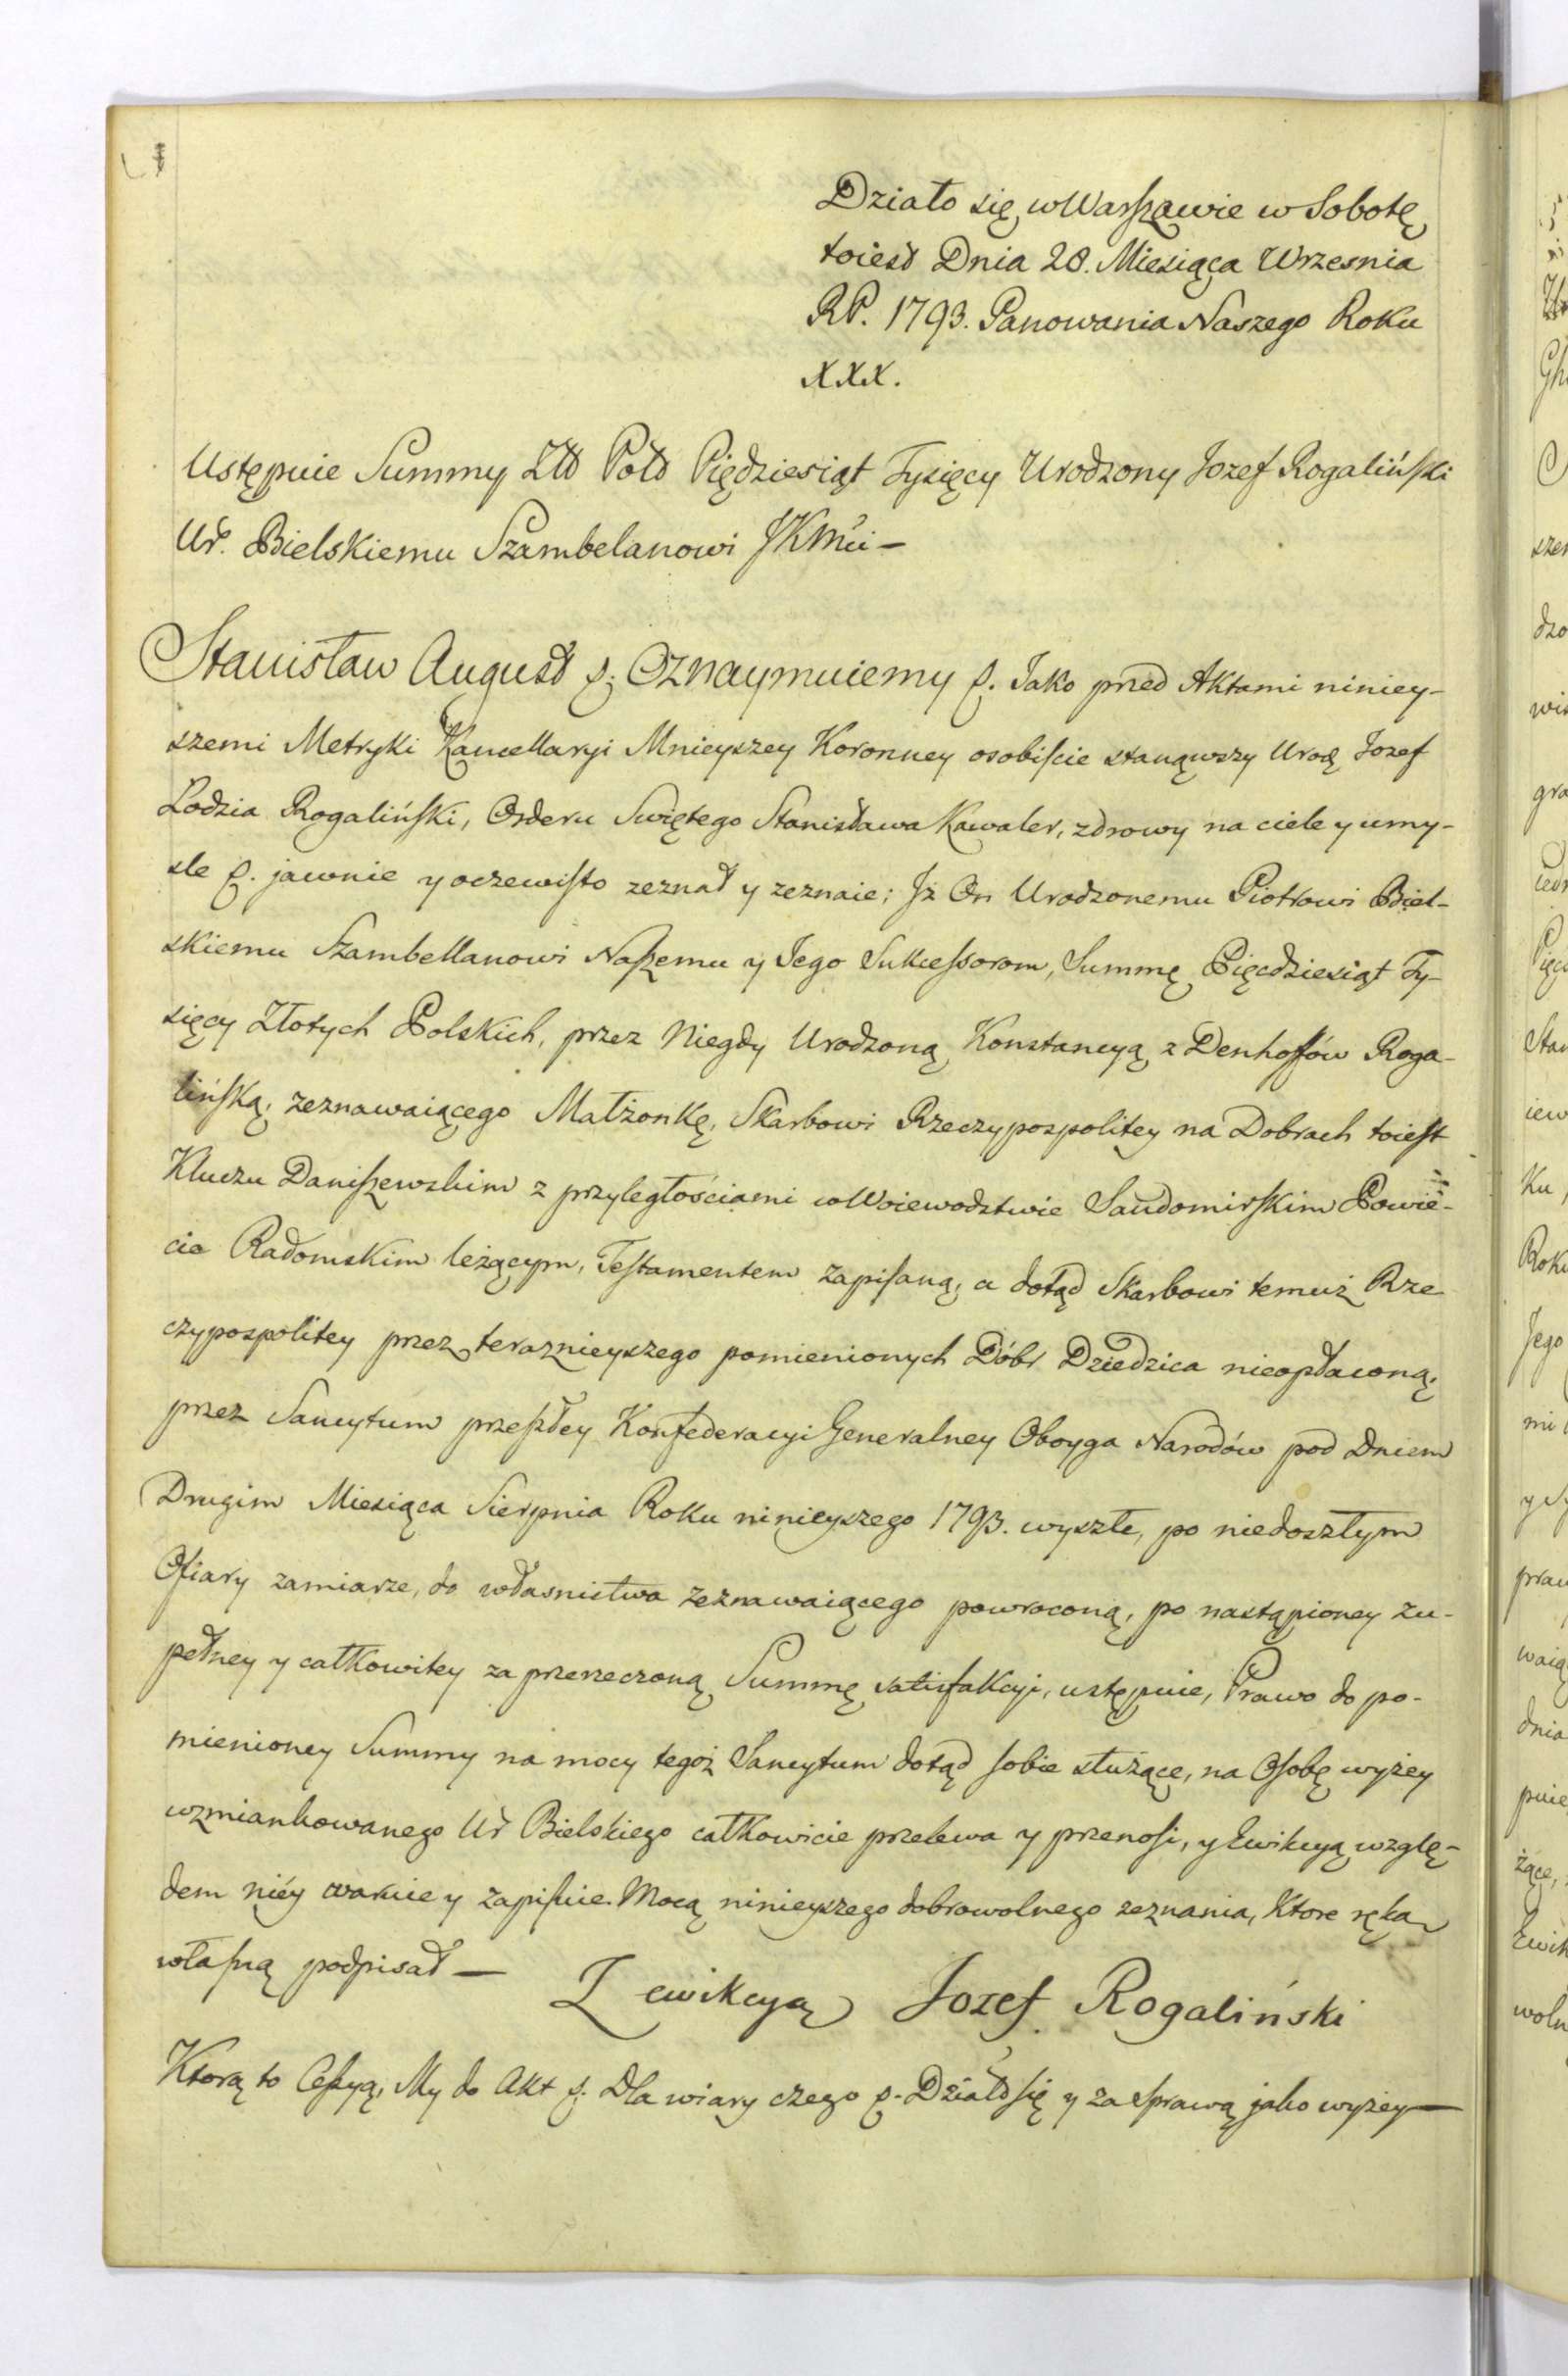 Działo się w Warszawie w Sobotę
toiesd Dnia 28. Miesiąca Wrzesnia
RP. 1793. Panowania Naszego Roku
XXX.
Ustępuie Summy Złł Polł Pięдziesiąt Tysięcy Urodzony Jozef Rogaliński
Ur. Bielskiemu Szambelanowi JKMci –
Stanisław August &; Oznaymuiemy &. Jako przed Aktami niniey-
szemi Metryki Kancellaryi Mnieyszey Koronney osobiście stanąwszy Urodz Jozef
Lodzia Rogaliński, Orderu Swiętego Stanisława Kawaler, zdrowy na ciele y umy-
sle &. jawnie y oczewisto zeznał y zeznaie; Jż On Urodzonemu Piotrowi Biel-
skiemu Szambellanowi Naszemu y Jego Sukcessorom, Summę Pięcdziesiąt Ty-
sięcy Złotych Polskich, przez Niegdy Urodzoną Konstancyą z Denhoffów Roga-
lińską, zeznawaiącego Małżonkę, Skarbowi Rzeczypospolitey na Dobrach toiest
Kluczu Daniszewskim z przyległościami w Woiewodztwie Sandomirskim Powie-
cie Radomskim leżącym, Testamentem zapisaną, a dotąd Skarbowi temuż Rze-
czypospolitey przez teraznieyszego pomienionych Dóbr Dziedzica nieopłaconą,
przez Sancytum przeszłey Konfederacyi Generalney Oboyga Narodów pod Dniem
Drugim Miesiąca Sierpnia Roku ninieyszego 1793. wyszłe, po niedoszłym
Ofiary zamiarze, do własnistwa zeznawaiącego powroconą, po nastąpioney zu-
pełney y całkowitey za przerzeczoną Summę satisfakcyi, ustępuie, Prawo do po-
mienioney Summy na mocy tegoż Sancytum dotąd sobie służące, na Osobę wyżey
wzmiankowanego Ur Bielskiego całkowicie przelewa y przenosi, y Ewikcyą wzglę-
dem niéy waruie y zapisuie. Mocą ninieyszego dobrowolnego zeznania, Ktore ręką
własną podpisał —
Z ewikcyą Jozef Rogaliński
Ktorą to Cessyą, My do Akt &. Dla wiary czego &. Działo się y za sprawą jako wyżey —